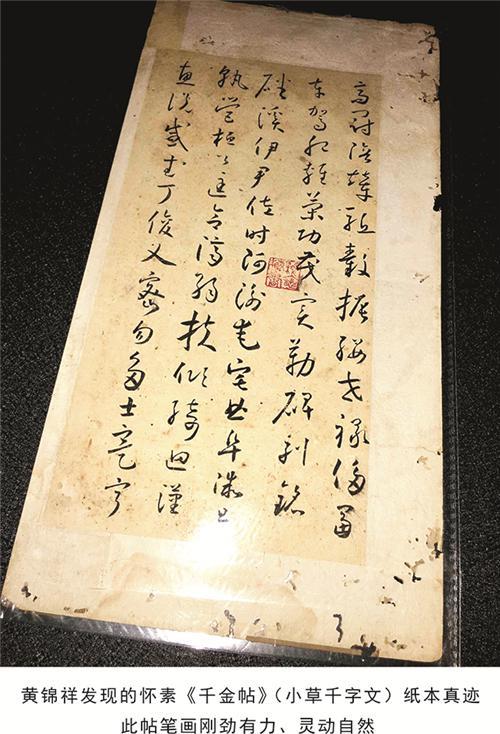 高冠陪輦驅轂振纓世祿侈富
車駕肥輕策功茂實勒碑刻銘
磻溪伊尹佐時阿衡奄宅曲阜微旦
孰營桓公匡合濟弱扶傾綺迴漢
惠說感武丁俊乂密勿多士寔寧
黄锦祥发现的怀素《千金帖》(小草千字文)纸本真迹
此帖笔画刚劲有力、灵动自然